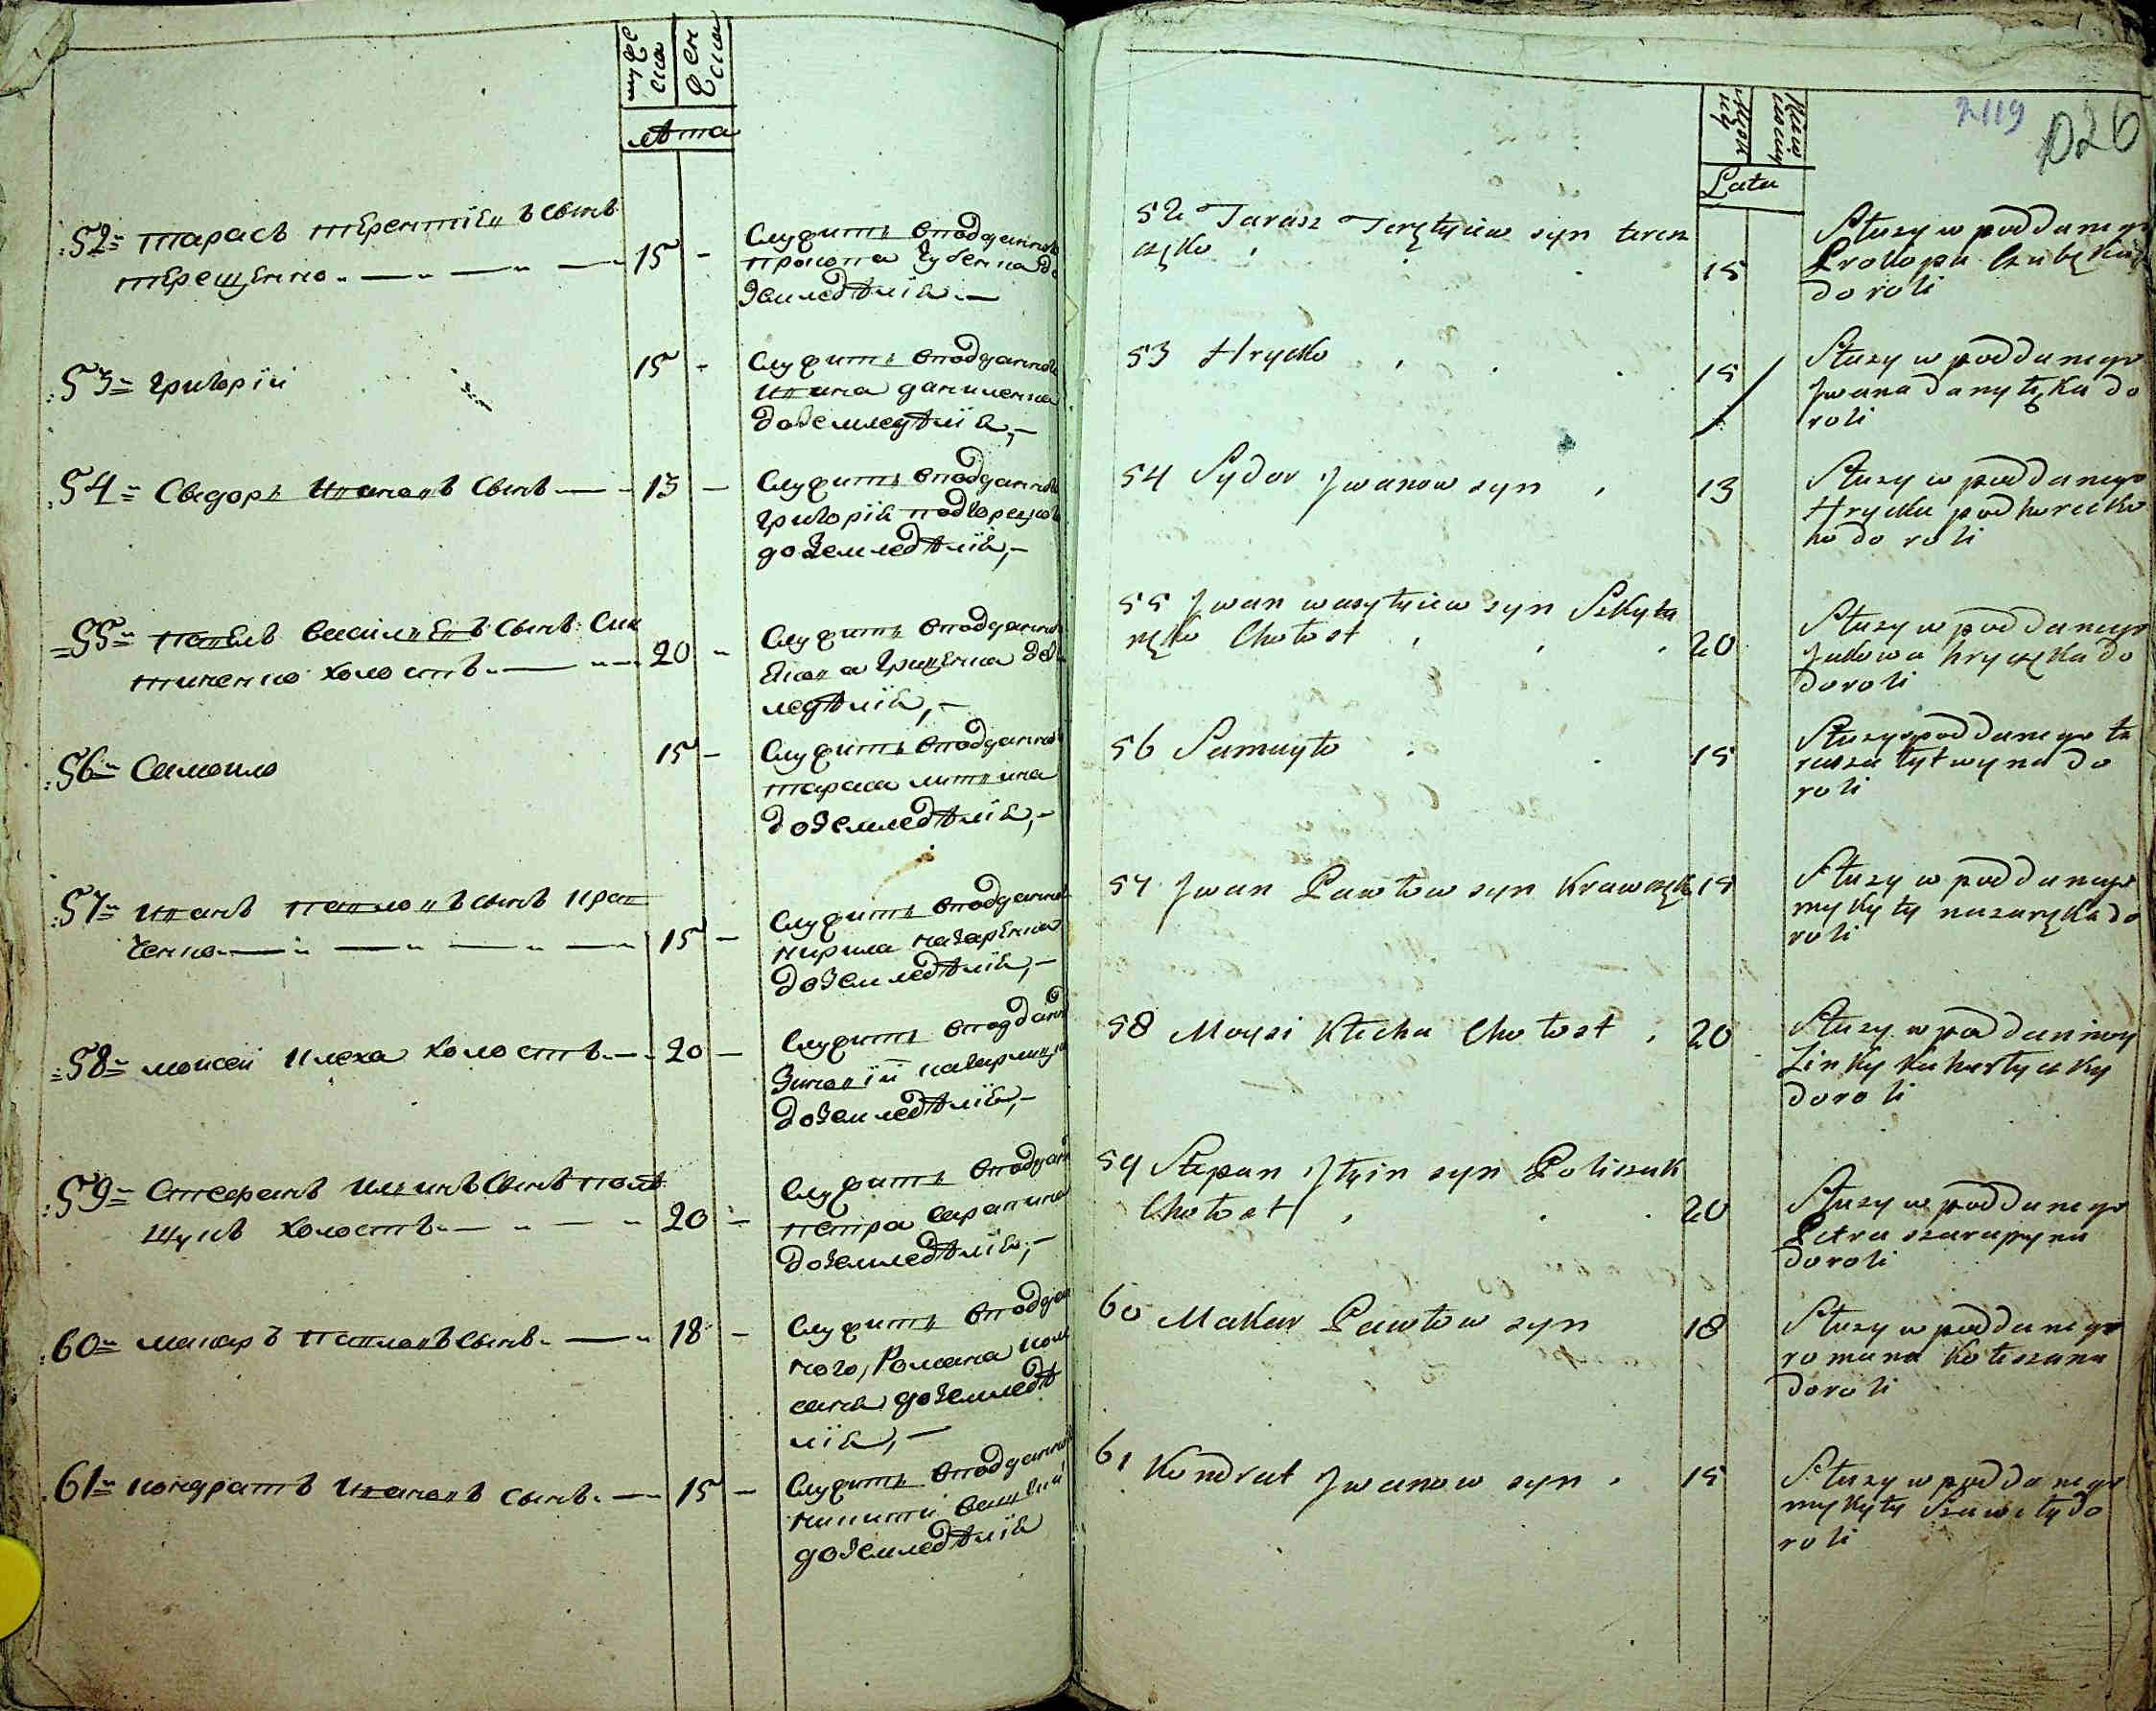 мужеска
женска
лѣта
52 Тарасъ Терентіевъ сынъ
Терещенко
15
Служитъ вподданного
Прокопа Зубенка до
земледѣлія
53 Григорій
15
Служитъ вподданного
Ивана Даниленка
до земледѣлія
54 Сидоръ Ивановъ сынъ
13
Служитъ вподданного
Григорія Подгорецко
до земледѣлія
55 Василіевъ сынъ
холостъ
20
Служитъ вподданного
Якова Гриценка до
ледѣлія
56 Самоило
15
Служитъ вподданного
Тараса Литвина
до земледѣлія
57 Иванъ Павловъ сынъ Крав
ченко
15
Служитъ вподданного
Кирила Назаренка
до земледѣлія
58 Моисей Клеха холостъ
20
Служитъ вподдан
Зиновіи
до земледѣлія
59 Стефанъ Ильинъ сынъ Полѣ
щукъ холостъ
20
Служитъ вподдан
Петра Шарапина
до земледѣлія
60 Макаръ Павловъ сынъ
18
Служитъ вподдан
ного, Романа Коли
сана до земледѣ
лія
61 Кондратъ Ивановъ сынъ
15
Служитъ вподданного
Никити
до земледѣлія
2119
026
Lata
52 Tarasz Teretyiew syn teresz
częko
15
Służy w poddanego
Prokopa Czubęka
do roli
53 Hryćko
15
Służy w poddanego
Jwana danyłęka do
roli
54 Sydor Jwanow syn
13
Służy w poddanego
Hryćka podhorecko
ho do roli
55 Jwan wasylyiew syn Szkyta
nęko Chołost
20
Służy w poddanego
Jakowa hrycęka do
doroli
56 Samuyło
15
Służy w poddanego ta
rasza łytwyna do
roli
57 Jwan Pawłow syn Krawczęk
15
Służy w poddanego
mykyty nazaręka do
roli
58 Moysi Klicha Chołost
20
Służy w poddaniney
Zinky
doroli
59 Stepan Jłyin syn Poliszuk
Chołost
20
Służy w poddanego
Petra szarapyna
doroli
60 Makar Pawłow syn
18
Służy w poddanego
romana Koliszana
doroli
61 Kondrat Jwanow syn
15
Służy w poddanego
mykyty Szaweły do
roli